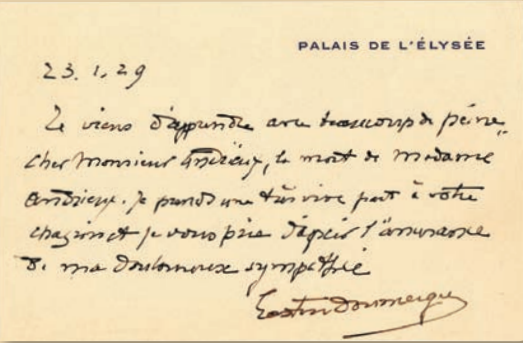 PALAIS DE L'ÉLYSÉE
23.1.29
Je viens d'apprendre avec beaucoup de peine,
cher Monsieur Andrieux, la mort de Madame
Andrieux. Je prends une très vive part à votre
chagrin et je vous prie d'agréer l'assurance
de ma douloureuse sympathie
Gaston Doumergue